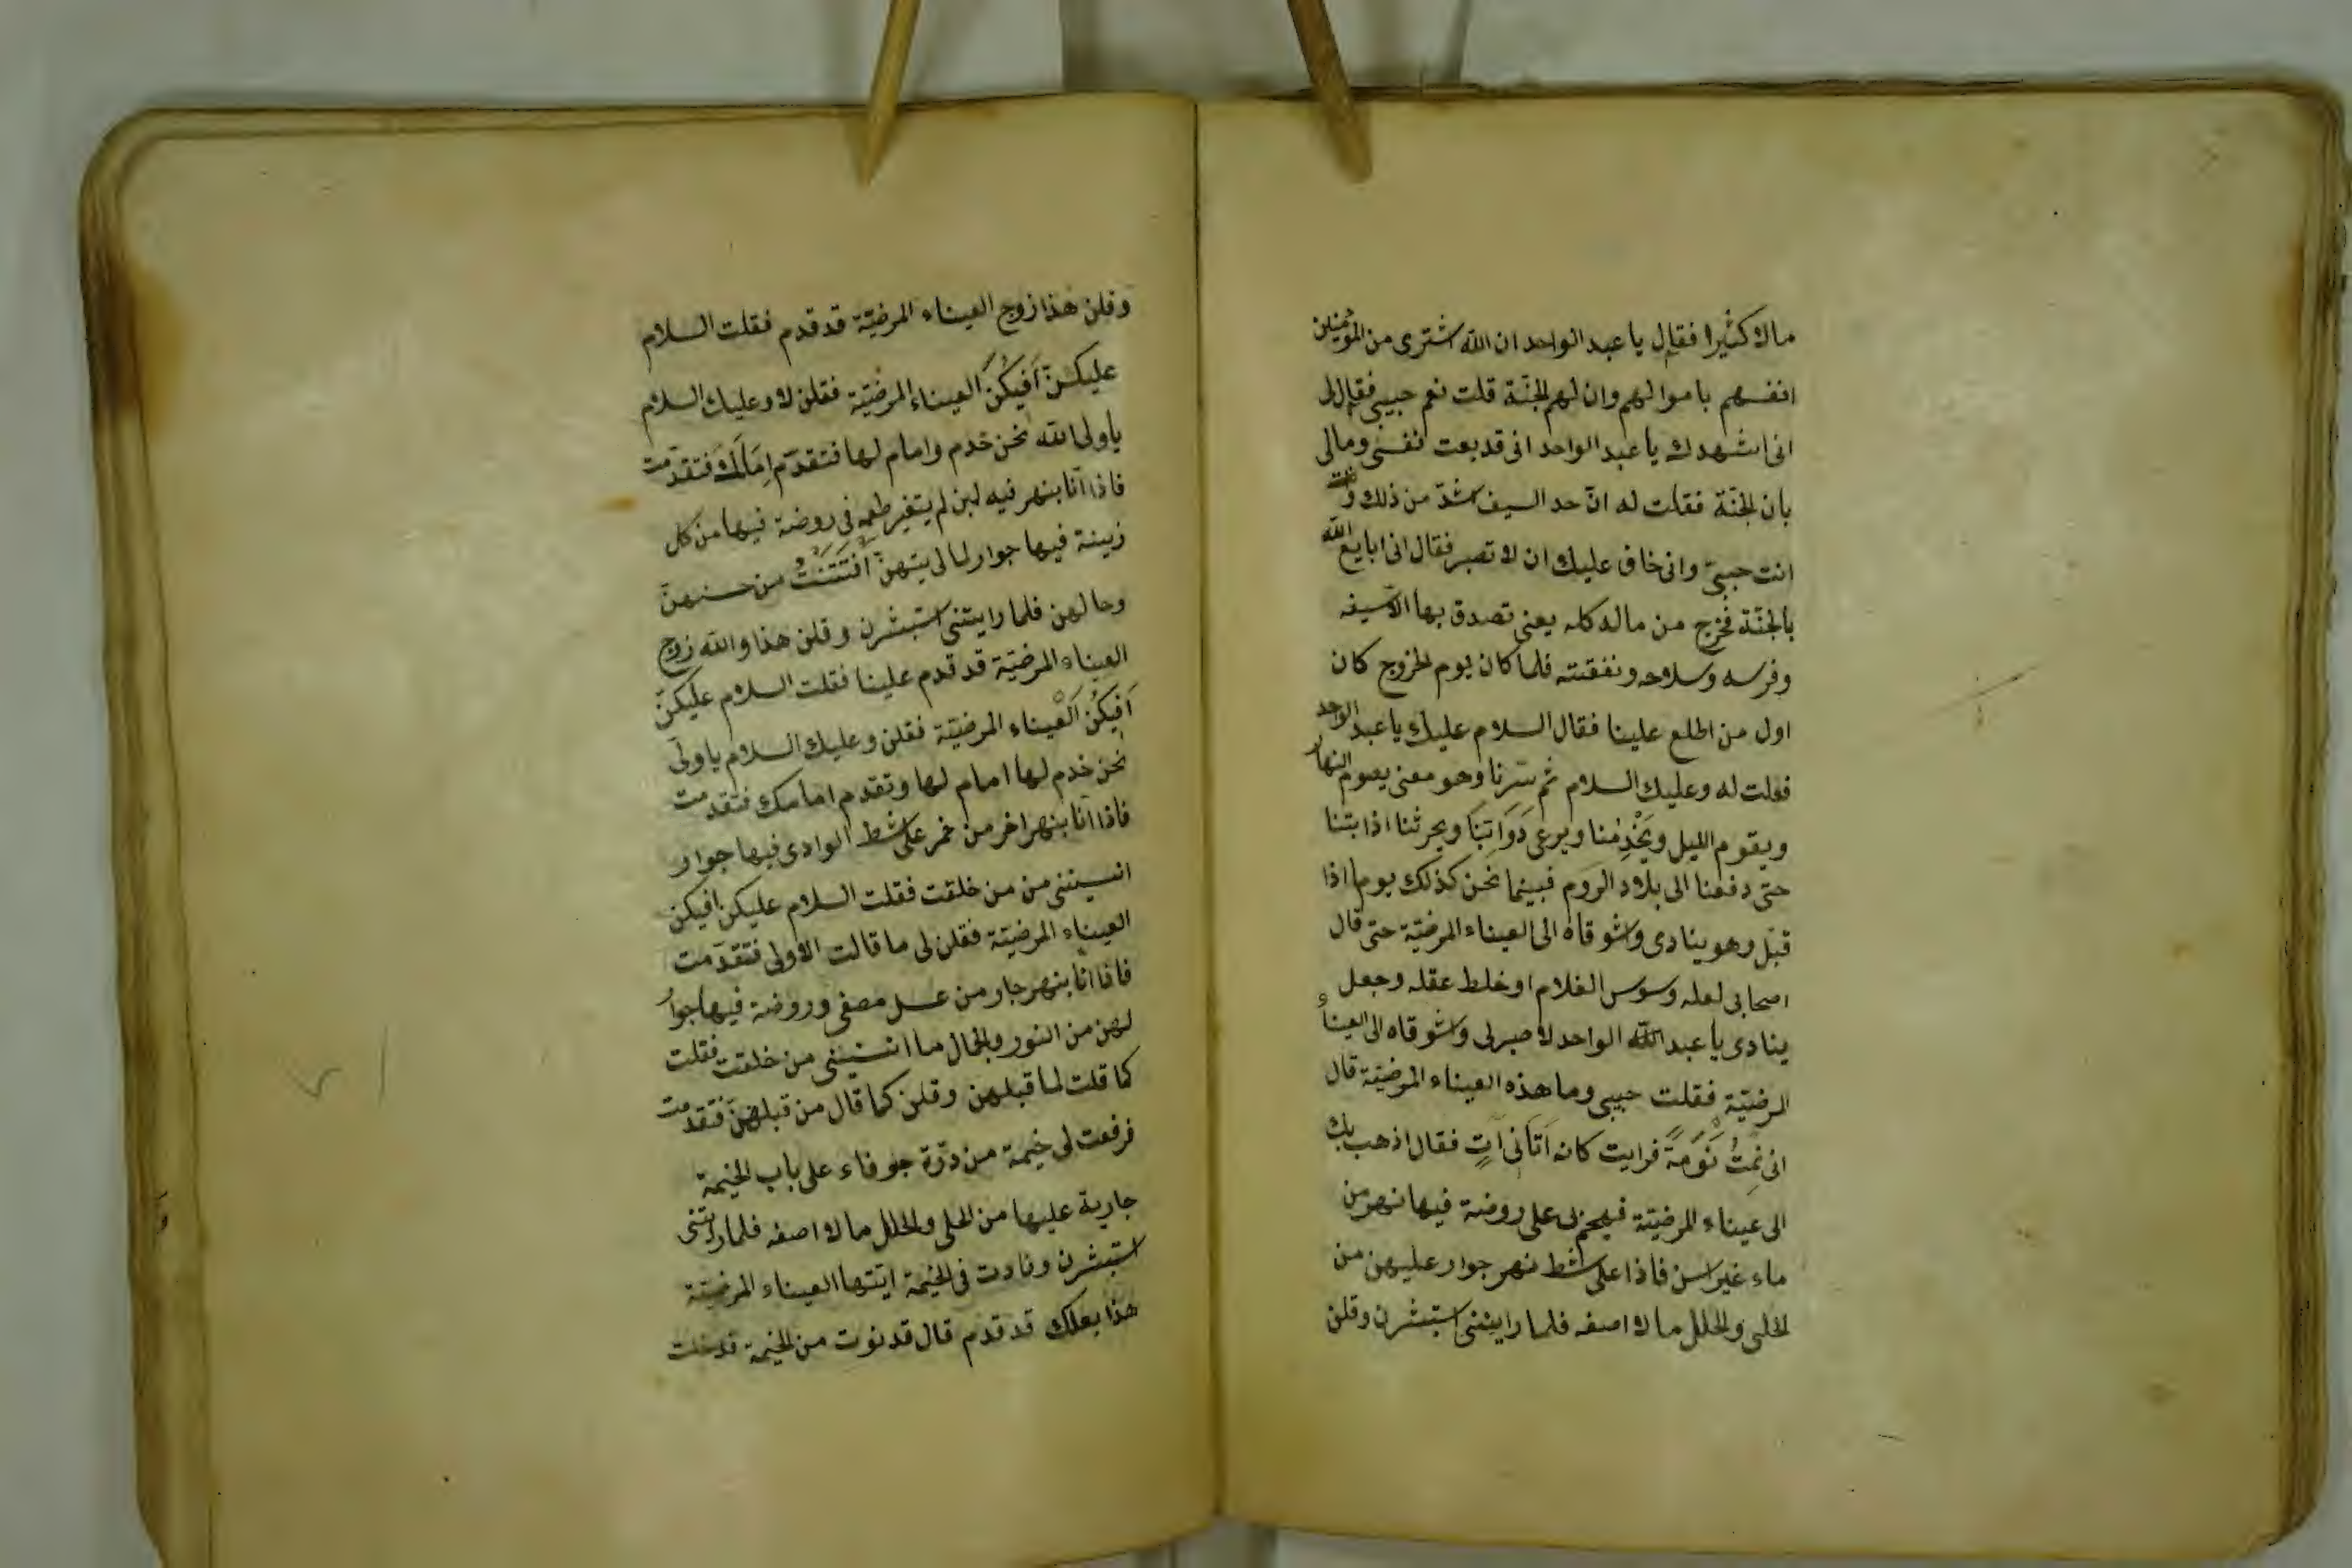 مالا كثيرا فقال يا عبد الواحد ان الله اشترى من المؤمنين
انفسهم باموالهم وان لهم الجنة قلت نعم حبيبى فقال لى
انى اشهدك يا عبد الواحد انى قد بعت نفسى ومالى
بان الجنة فقلت له انّ حد السيف اشدّ من ذلك
انت حبيبىّ وانى خاف عليك ان لا تصبر فقال انى ابايع الله
بالجنّة فخرج من ماله كله يعنى تصدق بها الا سيفه
وفرسه وسلاحه ونفقته فلما كان يوم الخروج كان
اول من اطلع علينا فقال السلام عليك يا عبد الواحد
فقلت له وعليك السلام ثم سرنا وهو معنى يصوم النهار
ويقوم الليل ويَخْدِمُنا ويرعى دَوَابّنَا ويحرثنا اذا بتنا
حتى دفعنا الى بلاد الروم فبينما نحن كذلك يوما اذا
قبل وهو ينادى واشوقاه الى العيناء المرضيّة حتى قال
اصحابى لعله وسوس الغلام او خلط عقله وجعل
ينادى يا عبد الله الواحد لا صبر لى واشوقاه الى العيناء
المرضيّة فقلت حبيبى وما هذه العيناء المرضيّة قال
انى نِمتُ نَوْمَةً فرايت كانه اَتَانى اَتٍ فقال اذهب بك
الى عيناء المرضيّة فهجم بى على روضة فيها نهر من
ماء غير اسن فاذا على شط نهر جوار عليهن من
الحلى والحلل ما لا اصفه فلما راينى استبشرن وقلن
وقلن هذا زوج العيناء المرضيّة قد قدم فقلت السلام
عليكنّ اَفيكُنّ العيناء المرضيّة فقلن لا وعليك السلام
يا ولى الله نحن خدم وامام لها فتقدّم اِمَامَك فتقدّمت
فاذا انا بنهر فيه لبن لم يتغير طعمه فى روضة فيها من كل
زينة فيها جوار لما رايتهنّ اُفتَتَنْتُ من حسنهنّ
وجالهن فلما رايتنى استبشرن وقلن هذا والله زوج
العيناء المرضيّة قد قدم علينا فقلت السلام عليكنّ
اَفيكُنّ اَلْعيناء المرضيّة فقلن وعليك السلام يا ولى
نحن خدم لها امام لها وتقدم امامك فتقدمت
فاذا انا بنهر اخر من خمر على شط الوادى فيها جوار
انسيتنى من من خلقت فقلت السلام عليكن افيكن
العيناء المرضيّة فقلن لى ما قالت الاولى فتقدّمت
فاذا انا بنهر جار من عسل مصفى وروضة فيها جوار
لهن من النور والجمال ما انسينى من خلقت فقلت
كما قلت لما قبلهن وقلن كما قال من قبلهنّ فتقدمت
فرفعت لى خيمة من درّة جوفاء على باب الخيمة
جارية عليها من الحلى والحلل ما لا اصفه فلما راتنى
استبشرن ونادت فى الخيمة ايتها العيناء المرضيّة
هذا بعلك قد قدم قال قدنوت من الخيمة قدخلت